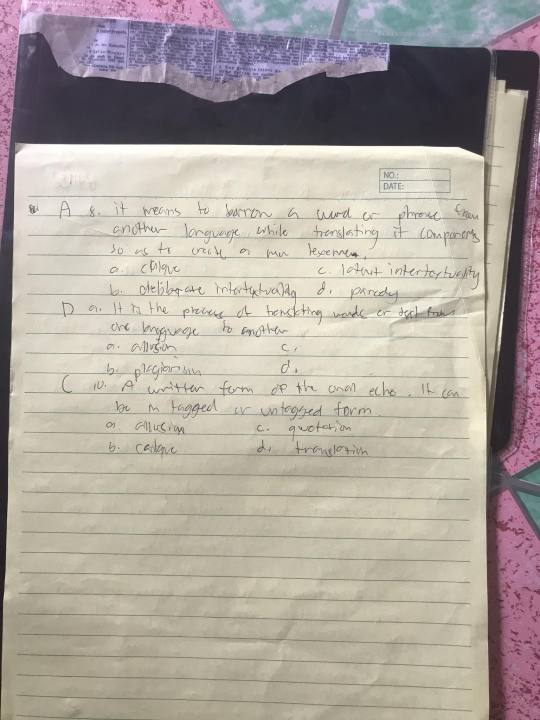 NO.:
DATE:
A 8. it means to borrow a word or phrase from
another language while translating it components
so as to create a new
a. calque c. latent intertextuality
b. deliberate intertextuality d. parody
D 9. It is the process of translating words or text from
one language to another
a. allusion c.
b. plagiarism d.
C 10. A written form of the oral echo. It can
be in tagged or untagged form.
a. allusion c. quotation
b. calque d. translation